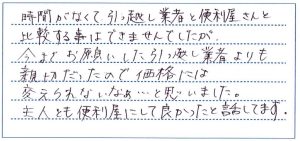 時間がなくて、引っ越し業者と便利屋さんと
比較する事はできませんでしたが、
今までお願いした引っ越し業者よりも
親切だったので価格には
変えられないなぁ…と思いました。
主人とも便利屋にして良かったと話してます。